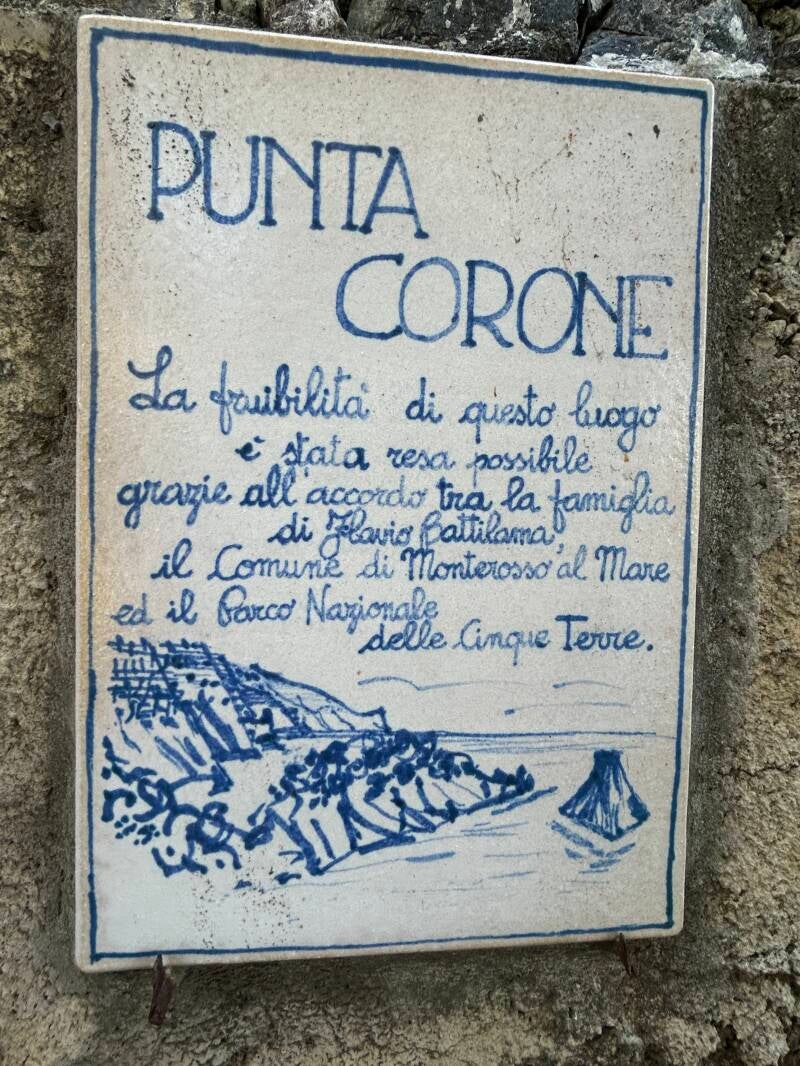 PUNTA
CORONE
La fruibilità di questo luogo
è stata resa possibile
grazie all'accordo tra la famiglia
di Flavio Battilama,
il Comune di Monterosso al Mare
ed il Parco Nazionale
delle Cinque Terre.